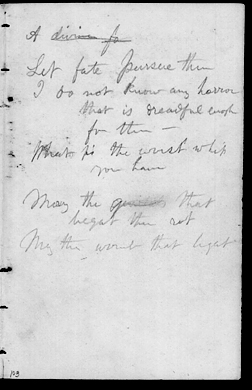 A divine fo
Let fate pursue them
I do not know any horror
that is dreadful enough
for them —
What is the worst whip
you have
May the genius that
begat them rot
My the womb that begat
103